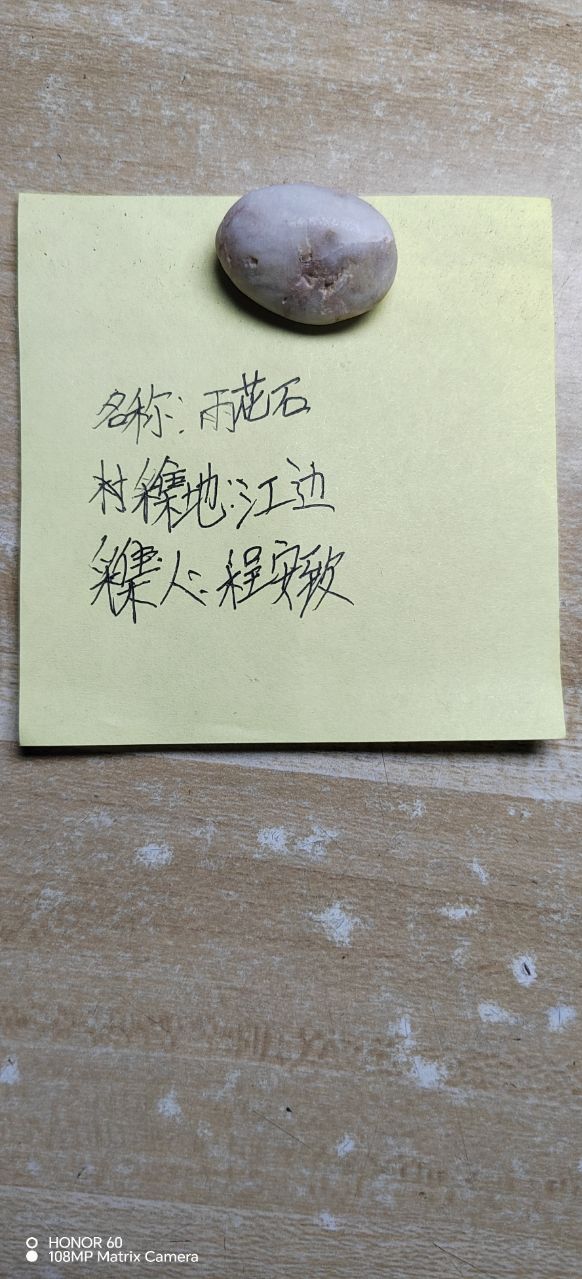 名称：雨花石
村采集地：江边
采集人：程安致
HONOR 60
108MP Matrix Camera